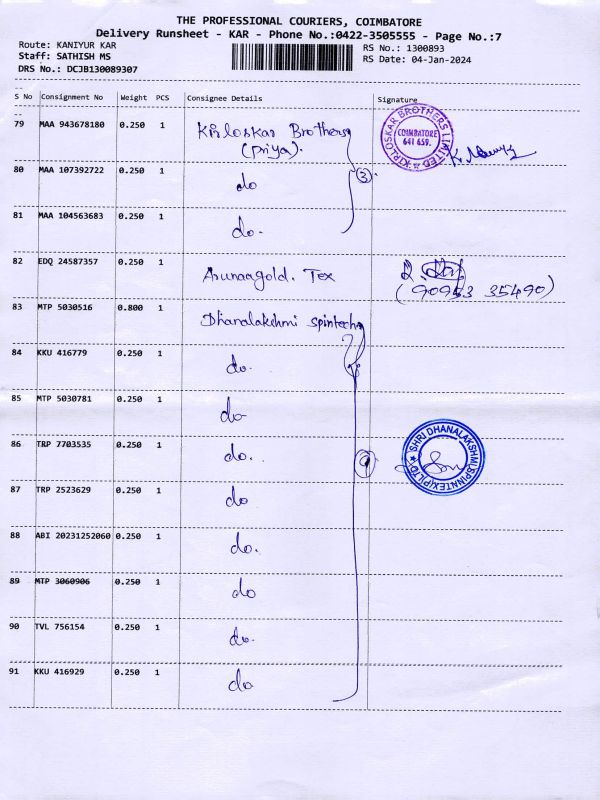 THE PROFESSIONAL COURIERS, COIMBATORE
Delivery Runsheet - KAR - Phone No.:0422-3505555 - Page No.:7
Route: KANIYUR KAR
RS No.: 1300893
Staff: SATHISH MS
RS Date: 04-Jan-2024
DRS No.: DCJB130089307
S No Consignment No Weight PCS Consignee Details Signature
79 MAA 943678180 0.250 1 Kirloskar Brothers
(Priya).
KIRLOSKAR BROTHERS LIMITED
COIMBATORE
641 659.
80 MAA 107392722 0.250 1 do
3
81 MAA 104563683 0.250 1 do.
82 EDQ 24587357 0.250 1 Arunaagold. Tex
(90953 35490)
83 MTP 5030516 0.800 1 Dhanalakshmi spintech
84 KKU 416779 0.250 1 do.
85 MTP 5030781 0.250 1 do
86 TRP 7703535 0.250 1 do.
9
SHRI DHANALAKSHMI SPINTEX (P) LTD
87 TRP 2523629 0.250 1 do
88 ABI 20231252060 0.250 1 do.
89 MTP 3060906 0.250 1 do
90 TVL 756154 0.250 1 do.
91 KKU 416929 0.250 1 do